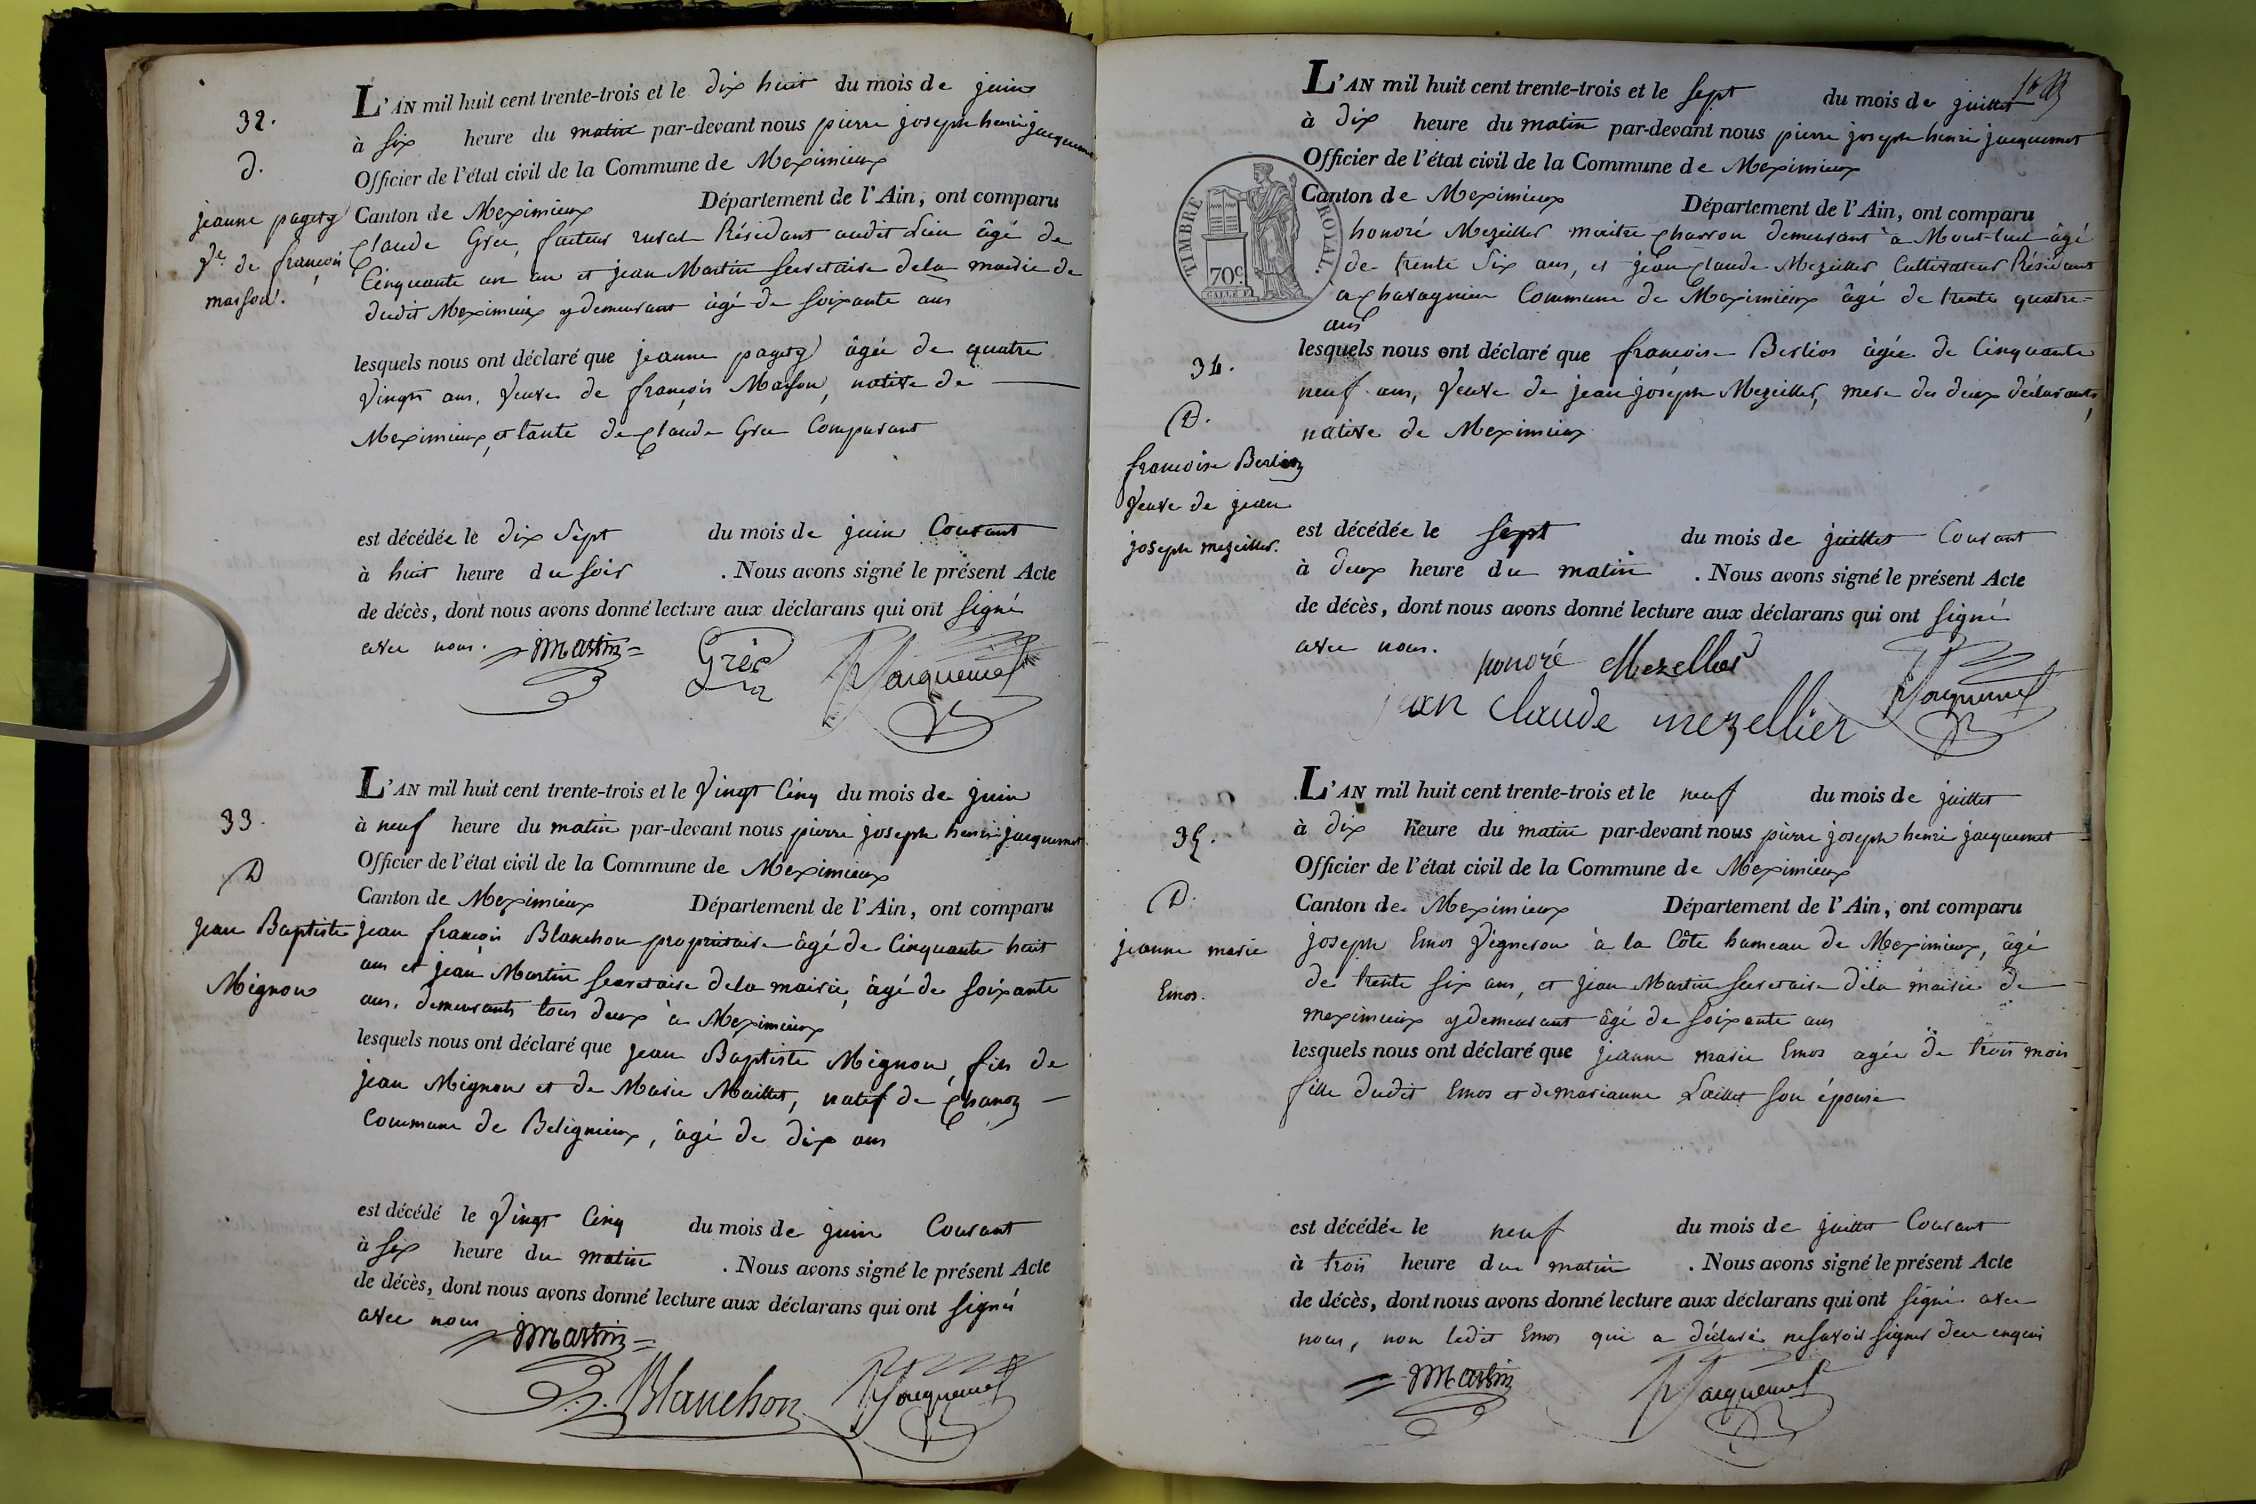 32.
D.
jeanne pagety
Ve. de françois
masson.
L'AN mil huit cent trente-trois et le dix huit du mois de juin
à six heure du matin par-devant nous pierre joseph henri jacquemet
Officier de l'état civil de la Commune de Meximieux
Canton de Meximieux Département de l'Ain, ont comparu
Claude Grée, facteur rural Résidant audit Lieu âgé de
Cinquante un an et jean Martin Secretaire de la mairie de
dudit Meximieux y demeurant âgé de soixante ans
lesquels nous ont déclaré que jeanne pagety âgée de quatre
vingts ans, Veuve de françois Masson, native de
Meximieux, et tante de Claude Grée Comparant
est décédée le dix Sept du mois de juin Courant
à huit heure du soir . Nous avons signé le présent Acte
de décès, dont nous avons donné lecture aux déclarans qui ont signé
avec nous. Martin Grée Jacquemet
33.
D
jean Baptiste
Mignon
L'AN mil huit cent trente-trois et le Vingt Cinq du mois de juin
à neuf heure du matin par-devant nous pierre joseph henri jacquemet
Officier de l'état civil de la Commune de Meximieux
Canton de Meximieux Département de l'Ain, ont comparu
jean françois Blanchon propriétaire âgé de Cinquante huit
ans et jean Martin Secretaire de la mairie, âgé de soixante
ans, demeurants tous deux à Meximieux
lesquels nous ont déclaré que jean Baptiste Mignon, fils de
jean Mignon et de Marie Maillet, natif de Chanoz
Commune de Beligneux, âgé de dix ans
est décédé le Vingt Cinq du mois de juin Courant
à six heure du matin . Nous avons signé le présent Acte
de décès, dont nous avons donné lecture aux déclarans qui ont signé
avec nous Martin
Blanchon Jacquemet
L'AN mil huit cent trente-trois et le sept du mois de juillet
à dix heure du matin par-devant nous pierre joseph henri jacquemet
Officier de l'état civil de la Commune de Meximieux
Canton de Meximieux Département de l'Ain, ont comparu
TIMBRE ROYAL.
70 c.
honoré Mezeiller maitre Charron demeurant à Mont-luel âgé
de trente Six ans, et jean Claude Mezeiller Cultivateur Résidant
a Chavagnieu Commune de Meximieux âgé de trente quatre
ans
34.
D.
francoise Berlioz
Veuve de jean
joseph mezeiller.
lesquels nous ont déclaré que francoise Berlios âgée de Cinquante
neuf ans, Veuve de jean joseph Mezeiller, mere des deux déclarants,
native de Meximieux
est décédée le sept du mois de juillet Courant
à deux heure du matin . Nous avons signé le présent Acte
de décès, dont nous avons donné lecture aux déclarans qui ont signé
avec nous. honoré Mezellier
jean claude mezellier Jacquemet
35.
D.
jeanne marie
Emos.
L'AN mil huit cent trente-trois et le neuf du mois de juillet
à dix heure du matin par-devant nous pierre joseph henri jacquemet
Officier de l'état civil de la Commune de Meximieux
Canton de Meximieux Département de l'Ain, ont comparu
joseph Emos Vigneron à la Côte hameau de Meximieux, âgé
de trente six ans, et jean Martin Secretaire de la mairie de
meximieux y demeurant âgé de soixante ans
lesquels nous ont déclaré que jeanne marie Emos agée de trois mois
fille dudit Emos et de marianne Laillet son épouse
est décédée le neuf du mois de juillet Courant
à trois heure du matin . Nous avons signé le présent Acte
de décès, dont nous avons donné lecture aux déclarans qui ont signé avec
nous, non ledit Emos qui a déclaré ne savoir signer de ce enquis
Martin Jacquemet